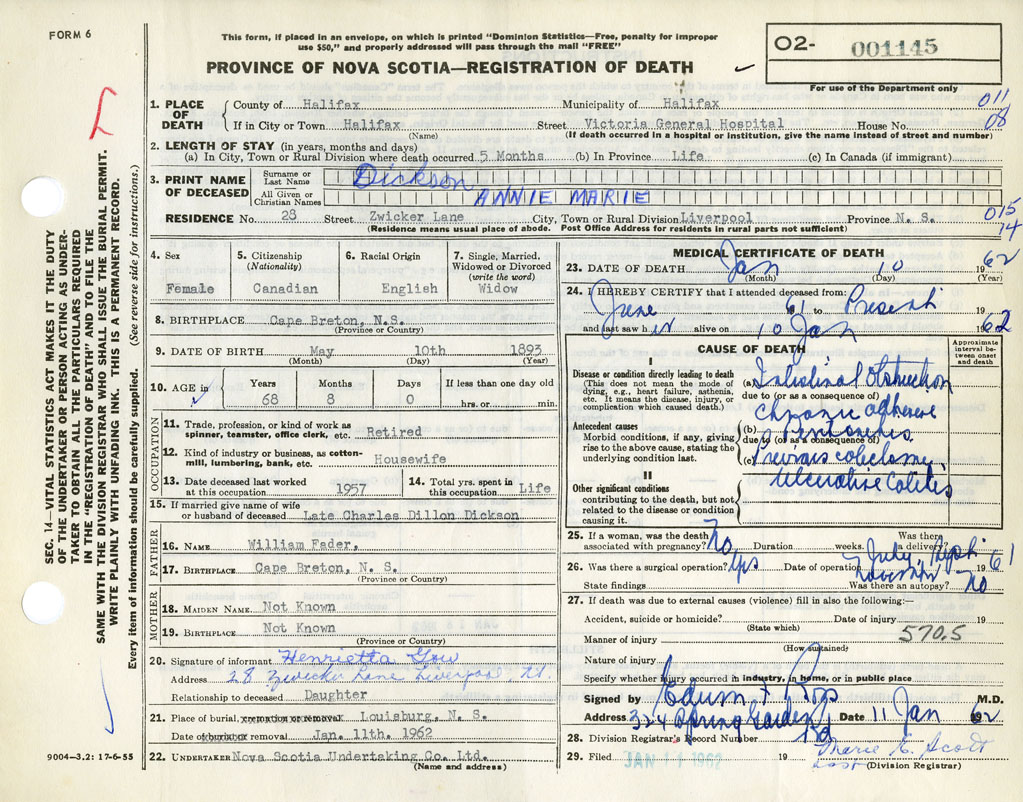 FORM 6
This form, if placed in an envelope, on which is printed "Dominion Statistics—Free, penalty for improper
use $50," and properly addressed will pass through the mail "FREE"
PROVINCE OF NOVA SCOTIA—REGISTRATION OF DEATH
O2- 001145
For use of the Department only
SEC. 14—VITAL STATISTICS ACT MAKES IT THE DUTY
OF THE UNDERTAKER OR PERSON ACTING AS UNDER-
TAKER TO OBTAIN ALL THE PARTICULARS REQUIRED
IN THE "REGISTRATION OF DEATH" AND TO FILE THE
SAME WITH THE DIVISION REGISTRAR WHO SHALL ISSUE THE BURIAL PERMIT.
WRITE PLAINLY WITH UNFADING INK. THIS IS A PERMANENT RECORD.
Every item of information should be carefully supplied. (See reverse side for instructions.)
1. PLACE OF DEATH County of Halifax Municipality of Halifax 011
If in City or Town Halifax Street Victoria General Hospital House No. 08
(Name) (If death occurred in a Hospital or Institution, give the name instead of street and number)
2. LENGTH OF STAY (in years, months and days)
(a) In City, Town or Rural Division where death occurred 5 Months (b) In Province Life (c) In Canada (if immigrant)
3. PRINT NAME OF DECEASED Surname or Last Name Dickson
All Given or Christian Names ANNIE MARIE
RESIDENCE No. 28 Street Zwicker Lane City, Town or Rural Division Liverpool Province N. S. 015
(Residence means usual place of abode. Post Office Address for residents in rural parts not sufficient) 74
4. Sex 5. Citizenship (Nationality) 6. Racial Origin 7. Single, Married, Widowed or Divorced (write the word)
Female Canadian English Widow
8. BIRTHPLACE Cape Breton, N.S.
(Province or Country)
9. DATE OF BIRTH May 10th 1893
(Month) (Day) (Year)
10. AGE in Years Months Days If less than one day old
68 8 0 hrs. or min.
OCCUPATION
11. Trade, profession, or kind of work as spinner, teamster, office clerk, etc. Retired
12. Kind of industry or business, as cotton-mill, lumbering, bank, etc. Housewife
13. Date deceased last worked at this occupation 1957 14. Total yrs. spent in this occupation Life
15. If married give name of wife or husband of deceased Late Charles Dillon Dickson
FATHER
16. NAME William Fader,
17. BIRTHPLACE Cape Breton, N. S.
(Province or Country)
MOTHER
18. MAIDEN NAME Not Known
19. BIRTHPLACE Not Known
(Province or Country)
20. Signature of informant Henrietta Gow
Address 28 Zwicker Lane Liverpool, N.S.
Relationship to deceased Daughter
21. Place of burial, cremation or removal Louisburg, N. S.
Date of burial or removal Jan. 11th. 1962
22. UNDERTAKER Nova Scotia Undertaking Co. Ltd.
(Name and address)
9004—3.2: 17-6-55
MEDICAL CERTIFICATE OF DEATH
23. DATE OF DEATH Jan 10 1962
(Month) (Day) (Year)
24. I HEREBY CERTIFY that I attended deceased from:
June 61 to Present 19
and last saw her alive on 10 Jan 1962
CAUSE OF DEATH
Approximate interval between onset and death
I
Disease or condition directly leading to death (a) Intestinal Obstruction
(This does not mean the mode of dying, e.g., heart failure, asthenia, etc. It means the disease, injury, or complication which caused death.)
due to (or as a consequence of)
chronic adhesive
Antecedent causes (b) Peritonitis
Morbid conditions, if any, giving rise to the above cause, stating the underlying condition last.
due to (or as a consequence of)
(c) Previous colectomy
II
ulcerative Colitis
Other significant conditions
contributing to the death, but not related to the disease or condition causing it.
25. If a woman, was the death associated with pregnancy? No Duration weeks. Was there a delivery?
26. Was there a surgical operation? Yes Date of operation July, Sept 1961
November
State findings Was there an autopsy? No
27. If death was due to external causes (violence) fill in also the following:—
Accident, suicide or homicide? Date of injury 19
(State which)
Manner of injury 570.5
(How sustained)
Nature of injury
Specify whether injury occurred in industry, in home, or in public place
Signed by Edwin F. Ross M.D.
Address 324 Spring Garden Rd Date 11 Jan 1962
28. Division Registrar's Record Number
29. Filed JAN 11 1962 19 Marie E. Scott
(Division Registrar)